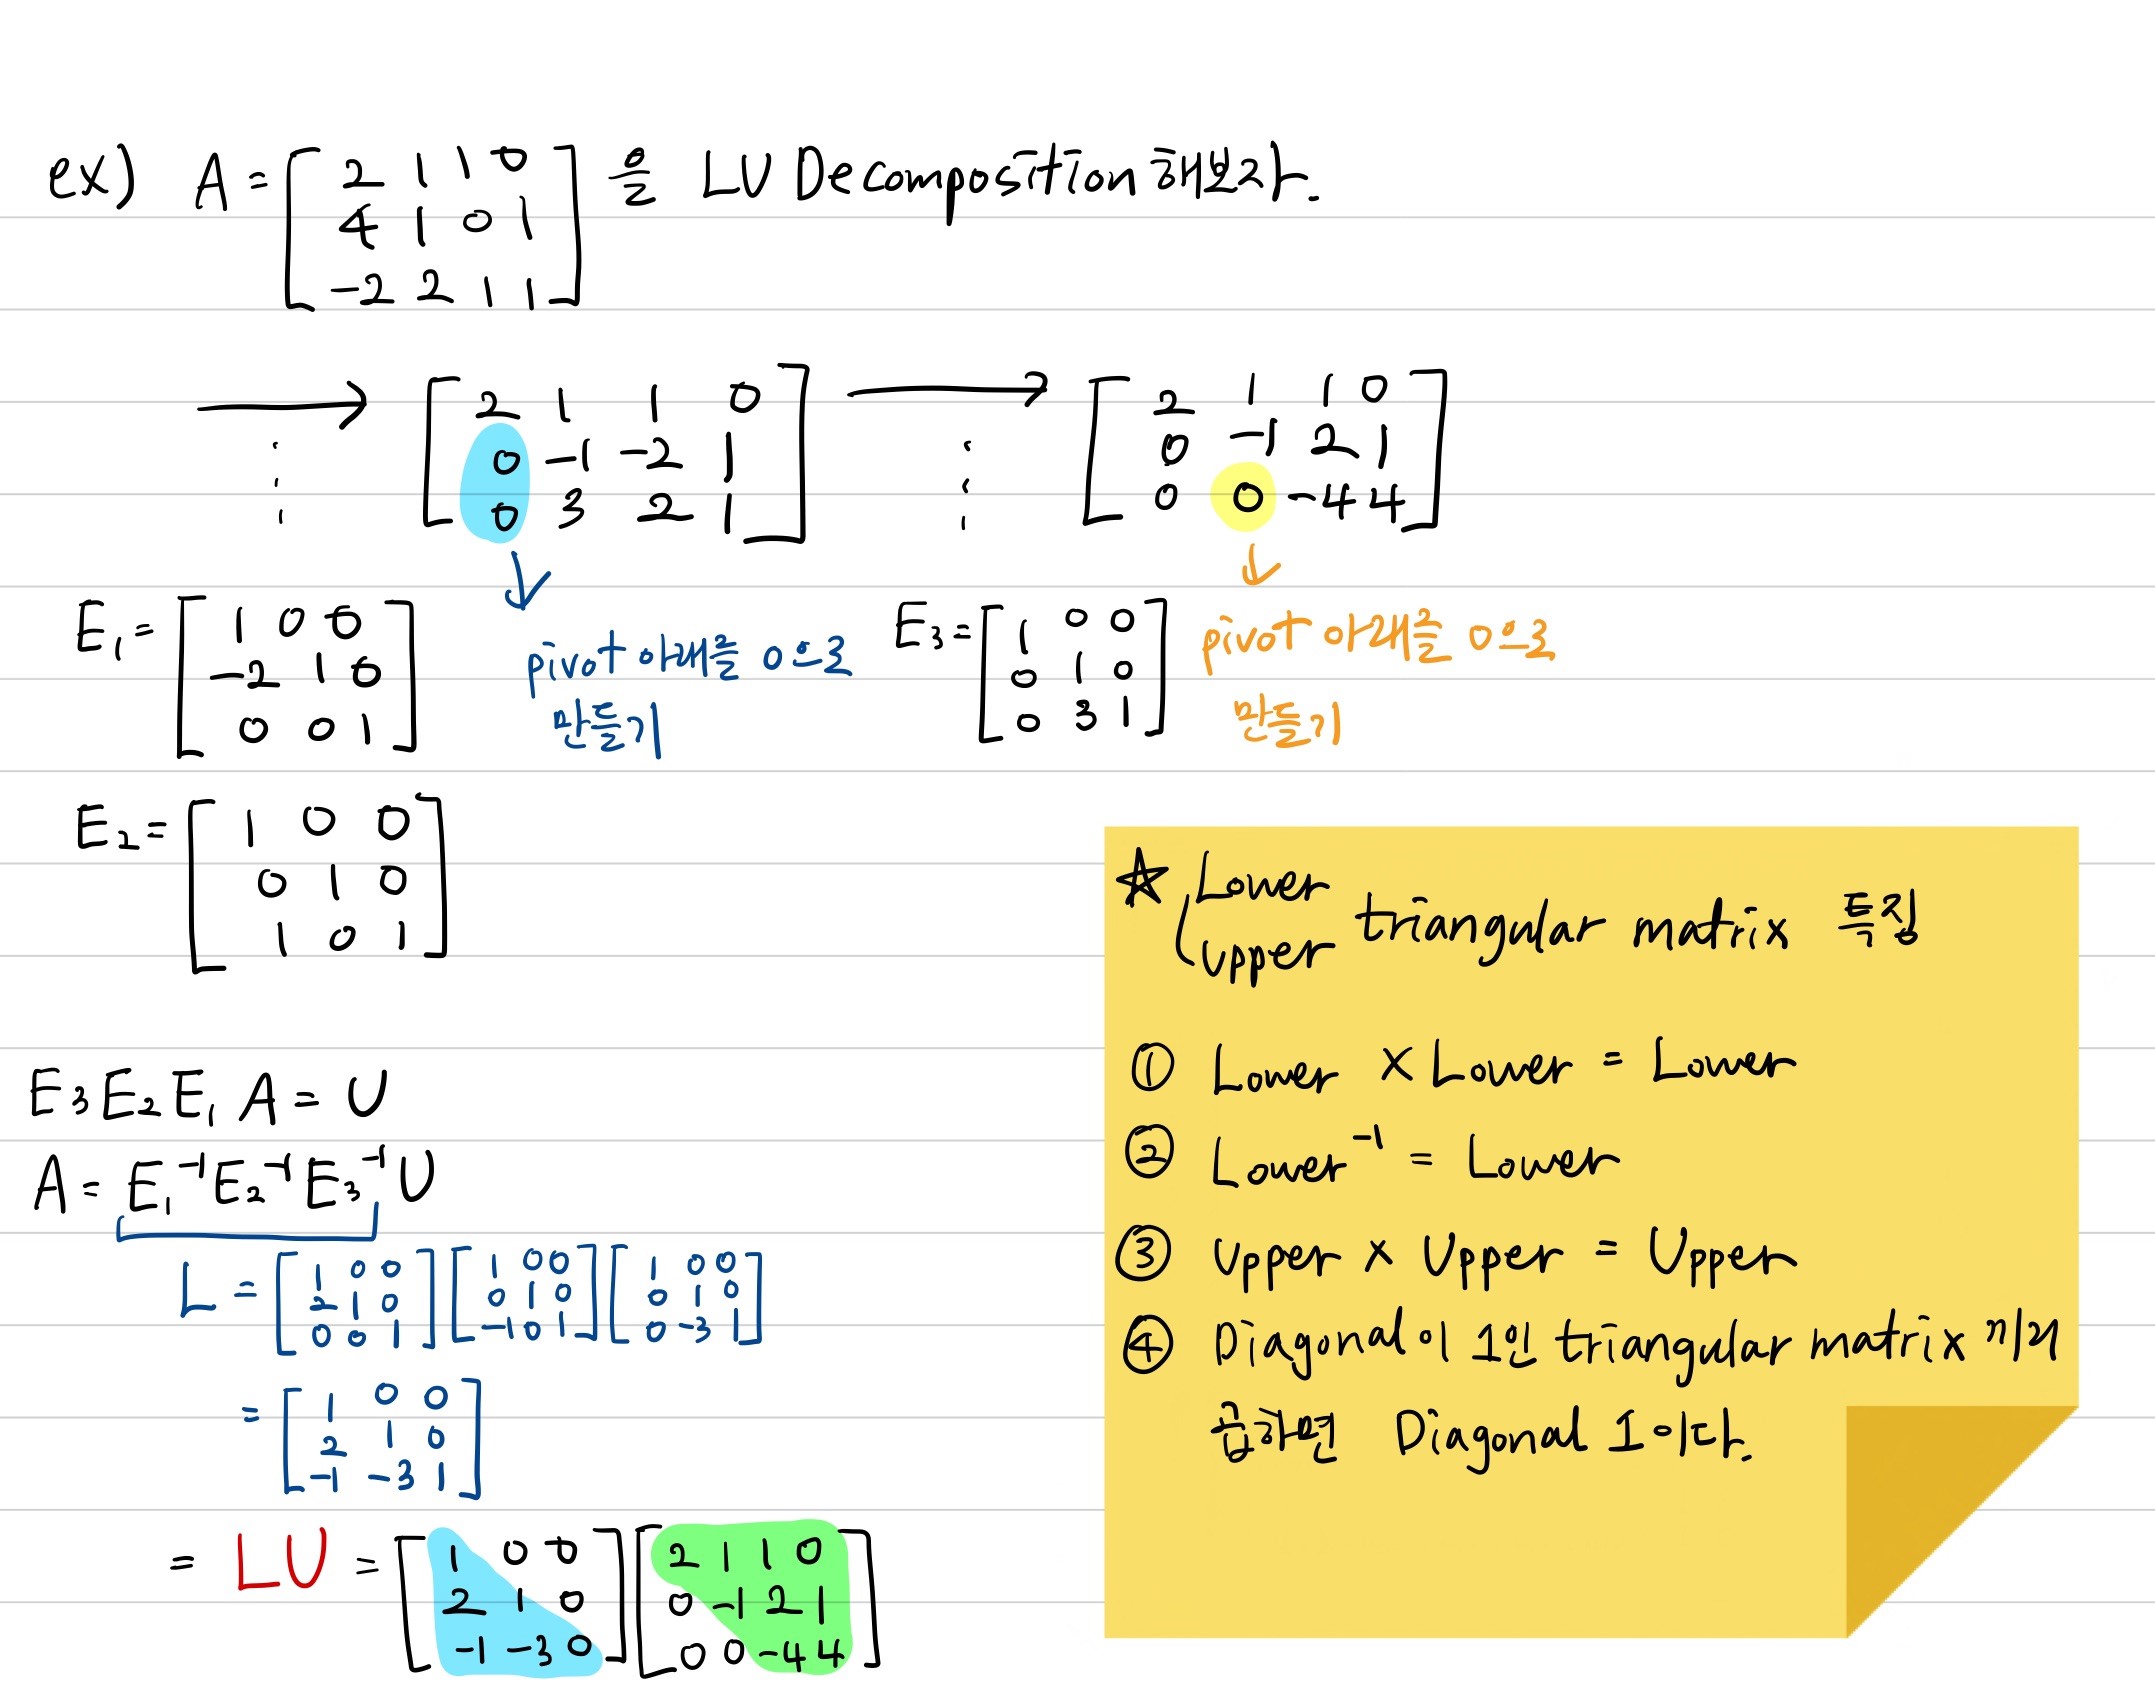 ex) A = [ 2 1 1 0 ] 을 LU Decomposition 해봐라.
4 1 0 1
-2 2 1 1
→ [ 2 1 1 0 ] → [ 2 1 1 0 ]
0 -1 -2 1 0 -1 2 1
0 3 2 1 0 0 -4 4
E1 = [ 1 0 0 ]
-2 1 0
0 0 1
pivot 아래를 0으로
만들기
E3 = [ 1 0 0 ]
0 1 0
0 3 1
pivot 아래를 0으로
만들기
E2 = [ 1 0 0 ]
0 1 0
1 0 1
E3 E2 E1 A = U
A = E1⁻¹ E2⁻¹ E3⁻¹ U
L = [ 1 0 0 ] [ 1 0 0 ] [ 1 0 0 ]
2 1 0 0 1 0 0 1 0
0 0 1 -1 0 1 0 -3 1
= [ 1 0 0 ]
2 1 0
-1 -3 1
= LU = [ 1 0 0 ] [ 2 1 1 0 ]
2 1 0 0 -1 2 1
-1 -3 0 0 0 -4 4
☆ Lower
Upper triangular matrix 특징
① Lower × Lower = Lower
② Lower⁻¹ = Lower
③ Upper × Upper = Upper
④ Diagonal이 1인 triangular matrix 끼리
곱하면 Diagonal 1이다.